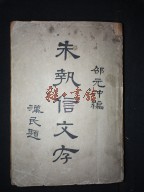 邵元冲編
朱執信文存
漢民題